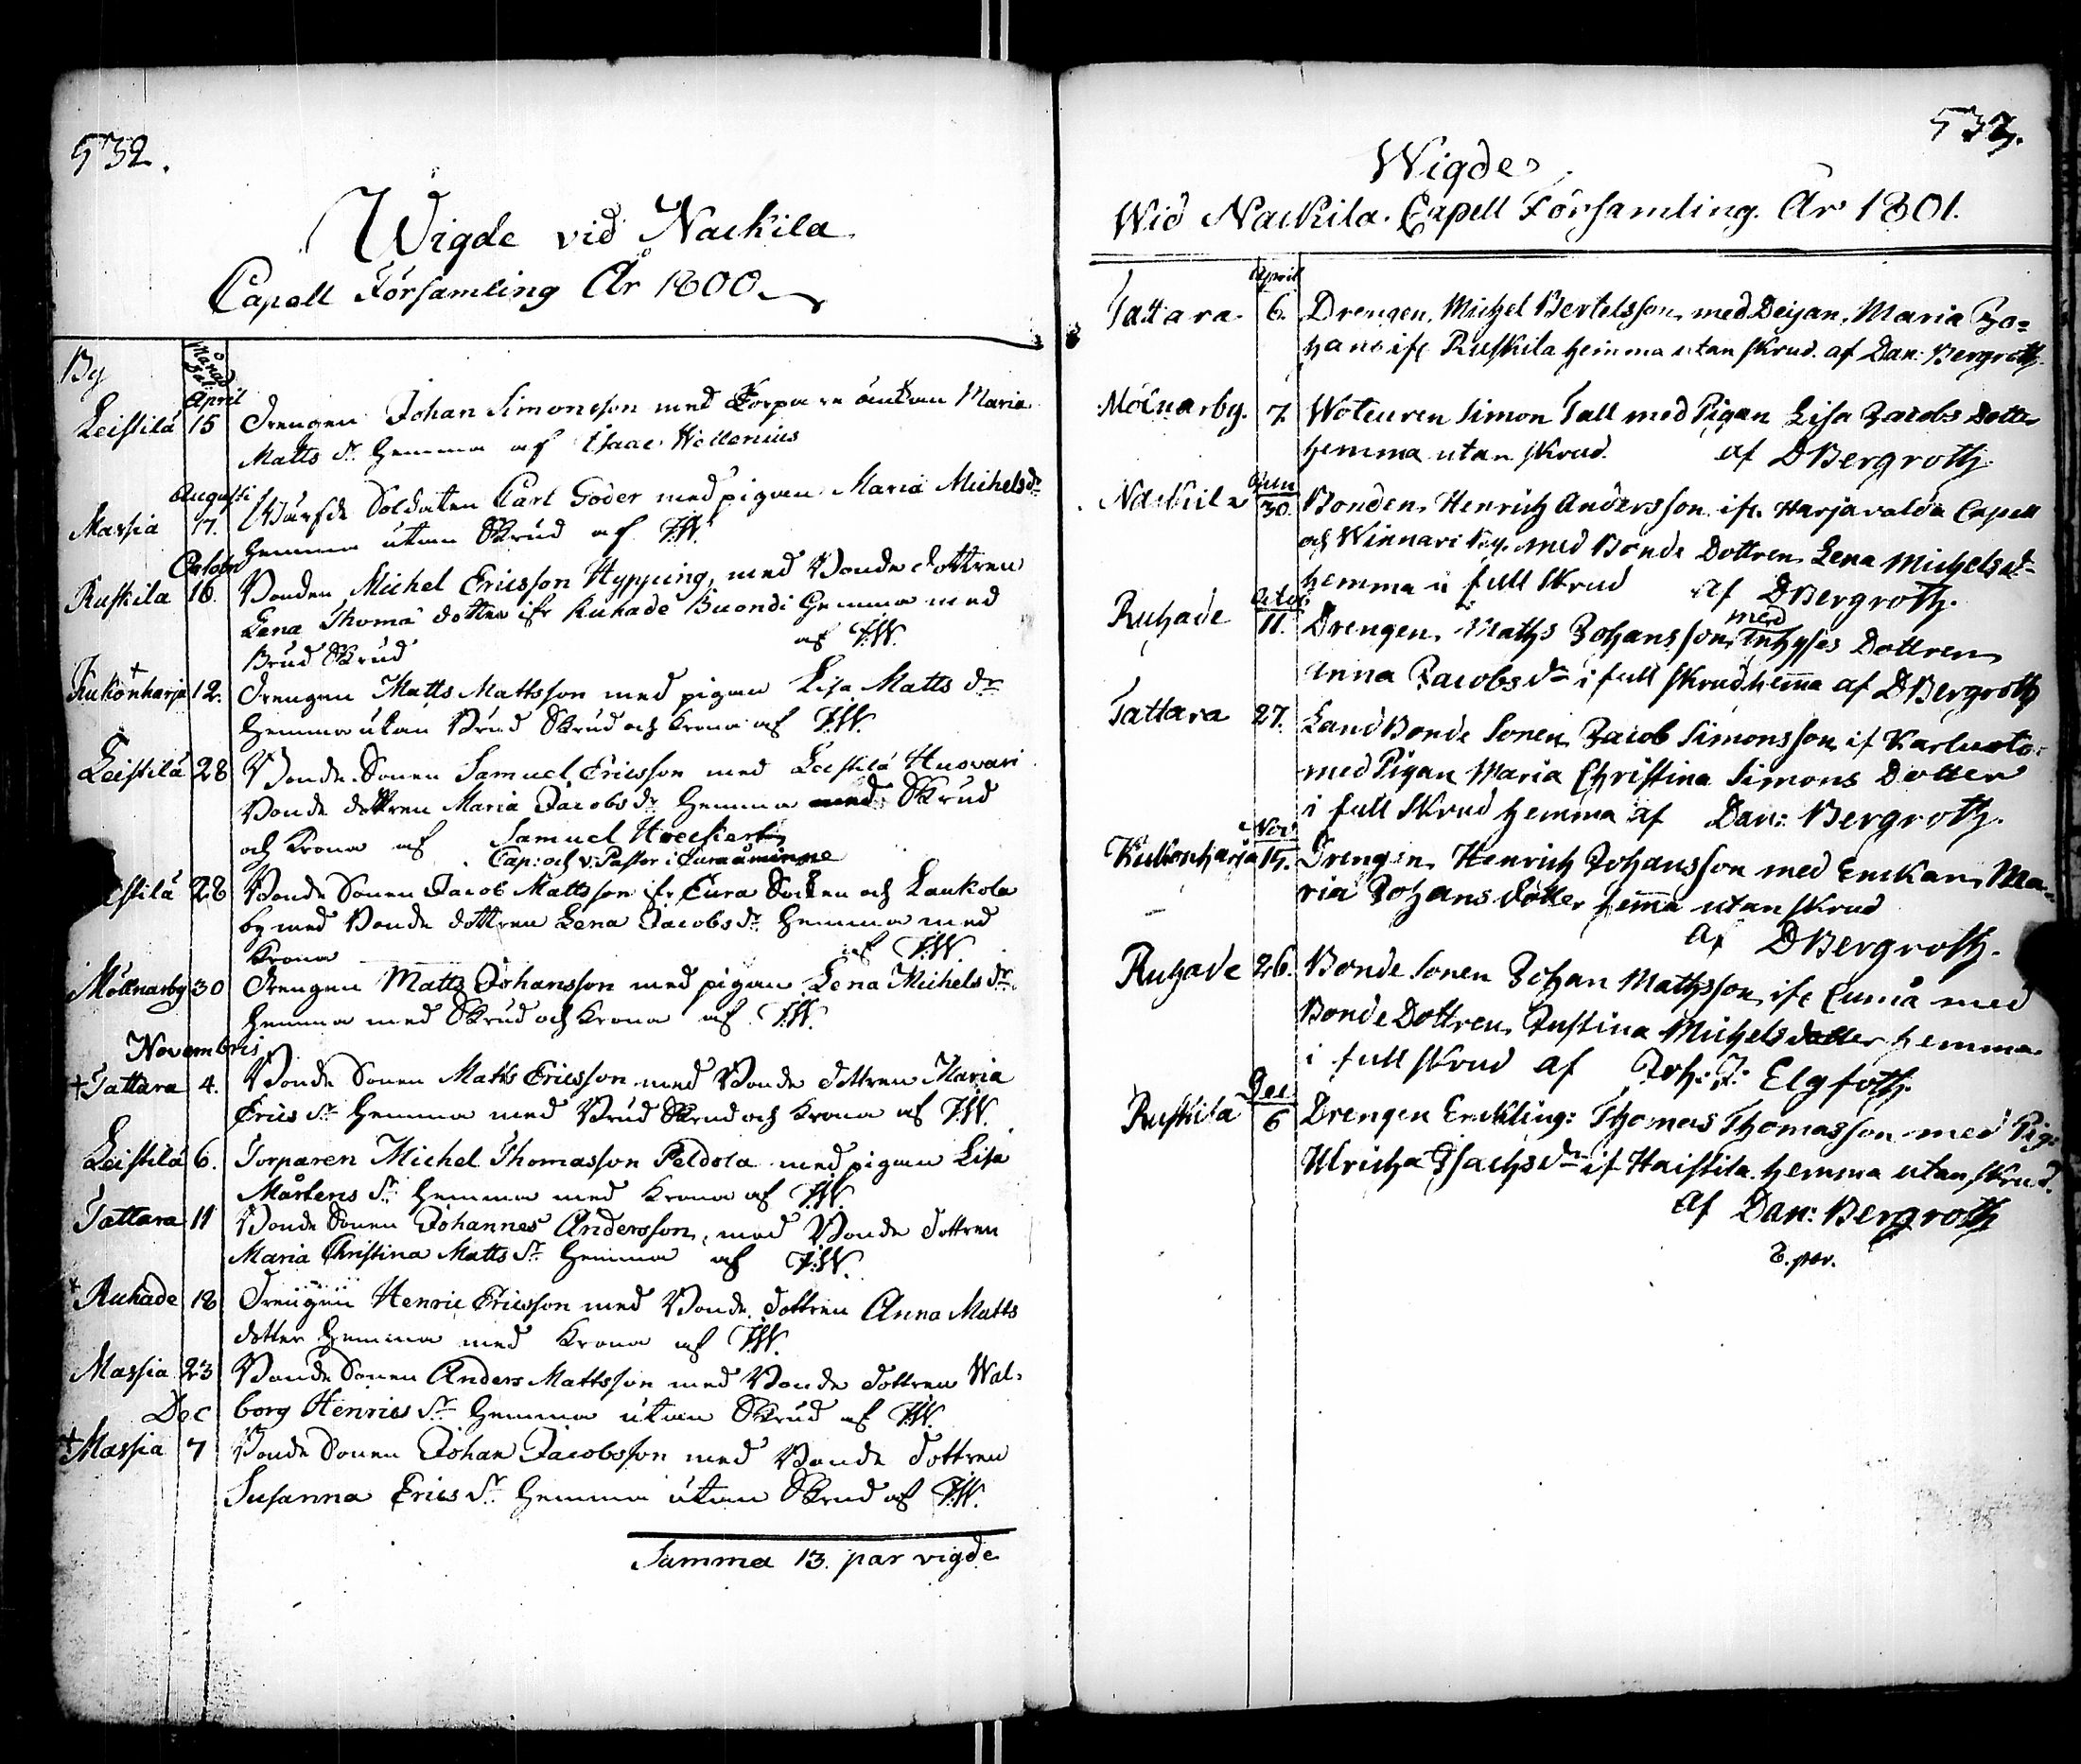 532.
Wigde vid Nackila
Capell Församling År 1800
By
Månad
April
Leistilä 15 Drengen Johan Simonsson med Torpare änkan Maria
Matts dr hemma af Isaac Wallenius
Augusti
Massia 17. Wärfde Soldaten Carl Göder med pigan Maria Michelsdr
hemma utan Skrud af I.W.
October
Ruskila 16. Bonden Michel Ericsson Hypping, med Bonde dottren
Lena Thomä dotter ifr Ruhade Buondi hemma med
Brud Skrud af I.W.
+
Kukonharja 12. Drengen Matts Mattsson med pigan Lisa Matts dr
hemma utan Brud Skrud och Krona af I.W.
Leistilä 28 Bonde Sonen Samuel Ericsson med Leistilä Huovari
Bonde dottren Maria Jacobs dr hemma med Skrud
och Krona af Samuel Hoeckert
Cap: och v: Pastor i Euraåminne
istilä 28 Bonde Sonen Jacob Mattsson ifr Eura Socken och Laukola
by med Bonde dottren Lena Jacobs dr hemma med
Krona af I.W.
Mölnarby 30 Drengen Matts Johansson med pigan Lena Michels dr
hemma med Skrud och Krona af I.W.
Novembris
+ Tattara 4. Bonde Sonen Matts Ericsson med Bonde dottren Maria
Erics dr hemma med Brud Skrud och Krona af I.W.
Leistilä 6. Torparen Michel Thomasson Peldola med pigan Lisa
Mårtens dr hemma med Krona af I.W.
Tattara 11 Bonde Sonen Johannes Andersson, med Bonde dottren
Maria Christina Matts dr hemma af I.W.
+ Ruhade 18 Drengen Henric Ericsson med Bonde dottren Anna Matts
dotter hemma med Krona af I.W.
Massia 23 Bonde Sonen Anders Mattsson med Bonde dottren Wal-
borg Henrics dr hemma utan Skrud af I.W.
Dec
+ Massia 7 Bonde Sonen Johan Jacobsson med Bonde dottren
Susanna Erics dr hemma utan Skrud af I.W.
Summa 13. par vigde
533.
Wigde
Wid Nackila Capell Församling År 1801.
April
Tattara 6. Drengen Michel Bertelsson med Deijan Maria Jo=
hans ifr Ruskila hemma utan skrud af Dan: Bergroth
Mölnarby. 7. Woteuren Simon Tall med Pigan Lisa Jacobs Dotter
hemma utan skrud. af DBergroth
Juni
Nackila 30. Bonden Henrich Andersson ifr Harjavalda Capell
och Winnari By. med Bonde Dottren Lena Michels dr
hemma i full skrud af DBergroth.
Octob:
Ruhade 11. Drengen Maths Johansson med Inhyses Dottren
Anna Jacobs dr i full skrud hema af DBergroth
Tattara 27. Land Bonde Sonen Jacob Simonsson if Karluoto
med Pigan Maria Christina Simons Dotter
i full skrud hemma af Dan: Bergroth.
Nov
Kukonharja 15. Drengen Henrich Johansson med Enckan Ma-
ria Johans dotter hema utan skrud
af DBergroth.
Ruhade 26. Bonde Sonen Johan Mathsson ifr Eumå med
Bonde Dottren Justina Michels dotter hemma
i full skrud af Joh: J: Elgfoth.
Dec
Ruskila 6 Drengen Enckling: Thomas Thomasson med Pig:
Ulricha Isachs dr if Haistila hemma utan skrud.
af Dan: Bergroth